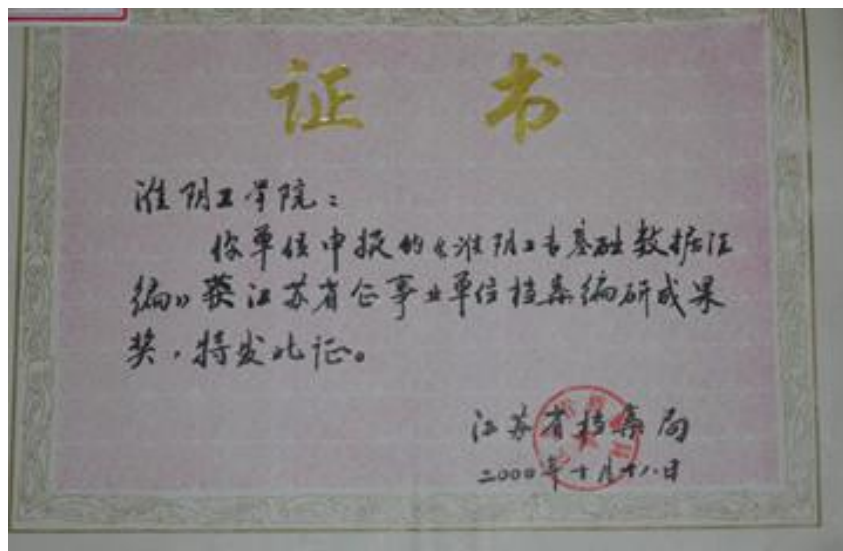 证 书
淮阴工学院：
你单位申报的《淮阴工专基础数据汇
编》获江苏省企事业单位档案编研成果
奖，特发此证。
江苏省档案局
二000年十月十八日